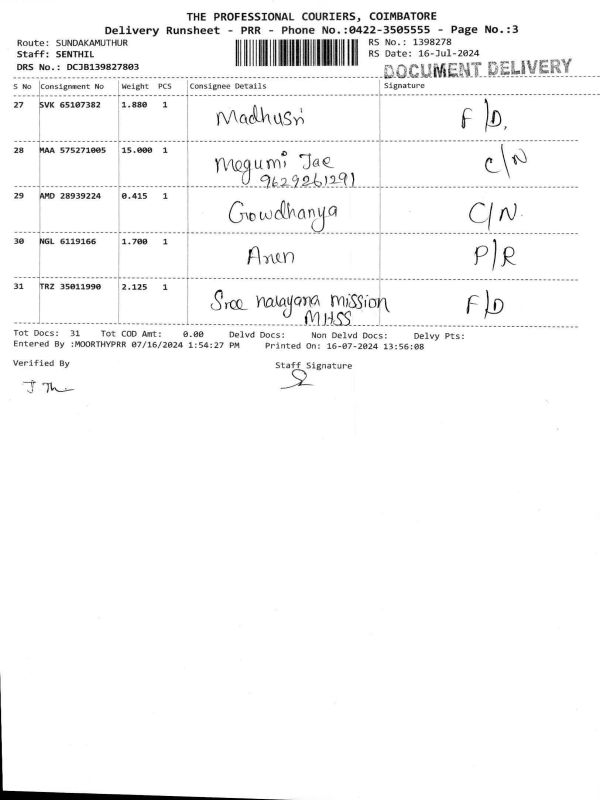 THE PROFESSIONAL COURIERS, COIMBATORE
Delivery Runsheet - PRR - Phone No.:0422-3505555 - Page No.:3
Route: SUNDAKAMUTHUR RS No.: 1398278
Staff: SENTHIL RS Date: 16-Jul-2024
DRS No.: DCJB139827803 DOCUMENT DELIVERY
S No Consignment No Weight PCS Consignee Details Signature
27 SVK 65107382 1.880 1 Madhusri F/D.
28 MAA 575271005 15.000 1 Megumi Jae C/N
9629261291
29 AMD 28939224 0.415 1 Gowdhanya C/N.
30 NGL 6119166 1.700 1 P/R
31 TRZ 35011990 2.125 1 Sree narayana mission F/D
MHSS
Tot Docs: 31 Tot COD Amt: 0.00 Delvd Docs: Non Delvd Docs: Delvy Pts:
Entered By :MOORTHYPRR 07/16/2024 1:54:27 PM Printed On: 16-07-2024 13:56:08
Verified By Staff Signature